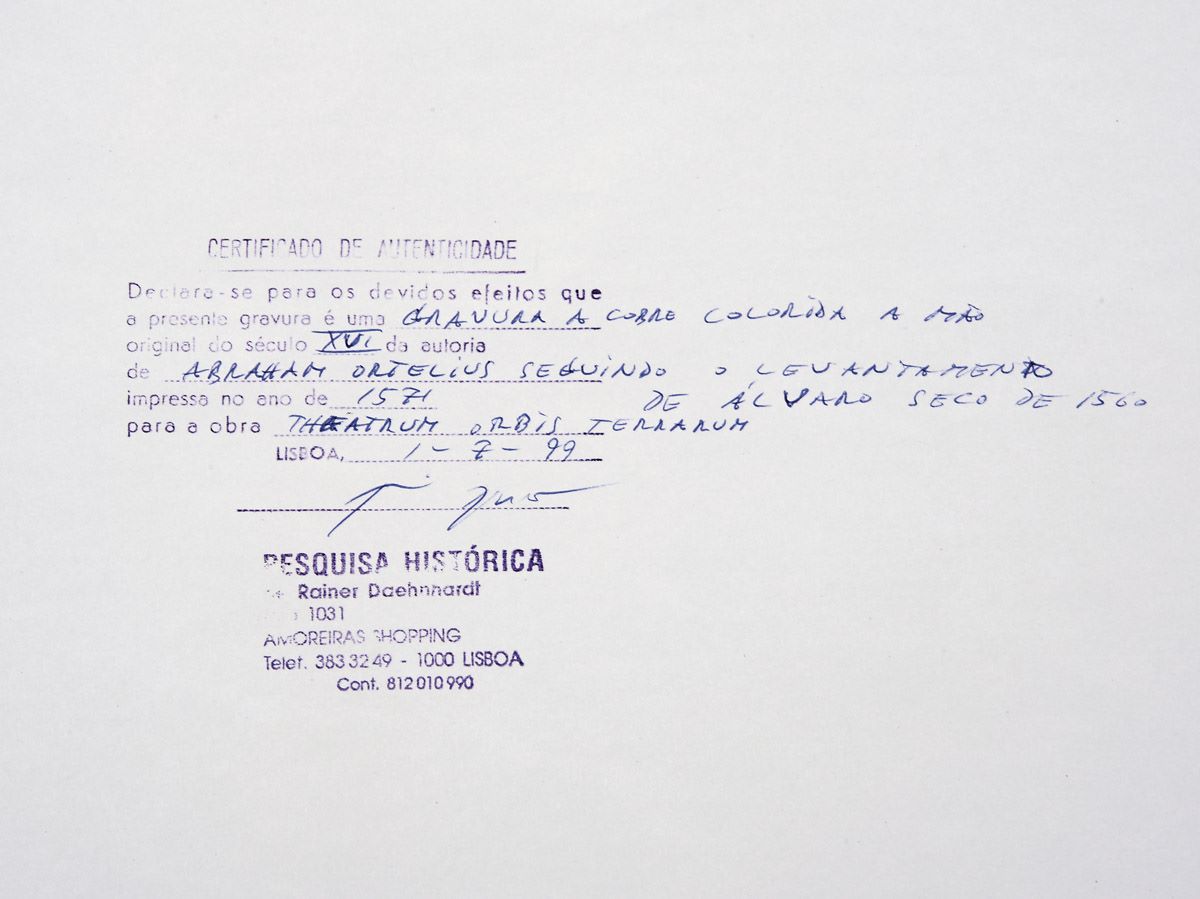 CERTIFICADO DE AUTENTICIDADE
Declara-se para os devidos efeitos que
a presente gravura é uma GRAVURA A COBRE COLORIDA A MÃO
original do século XVI da autoria
de ABRAHAM ORTELIUS SEGUINDO O LEVANTAMENTO
impressa no ano de 1571 DE ÁLVARO SECO DE 1560
para a obra THEATRUM ORBIS TERRARUM
LISBOA, 1-7-99
PESQUISA HISTÓRICA
Rainer Daehnhardt
1031
AMOREIRAS SHOPPING
Telef. 3833249 - 1000 LISBOA
Cont. 812010990